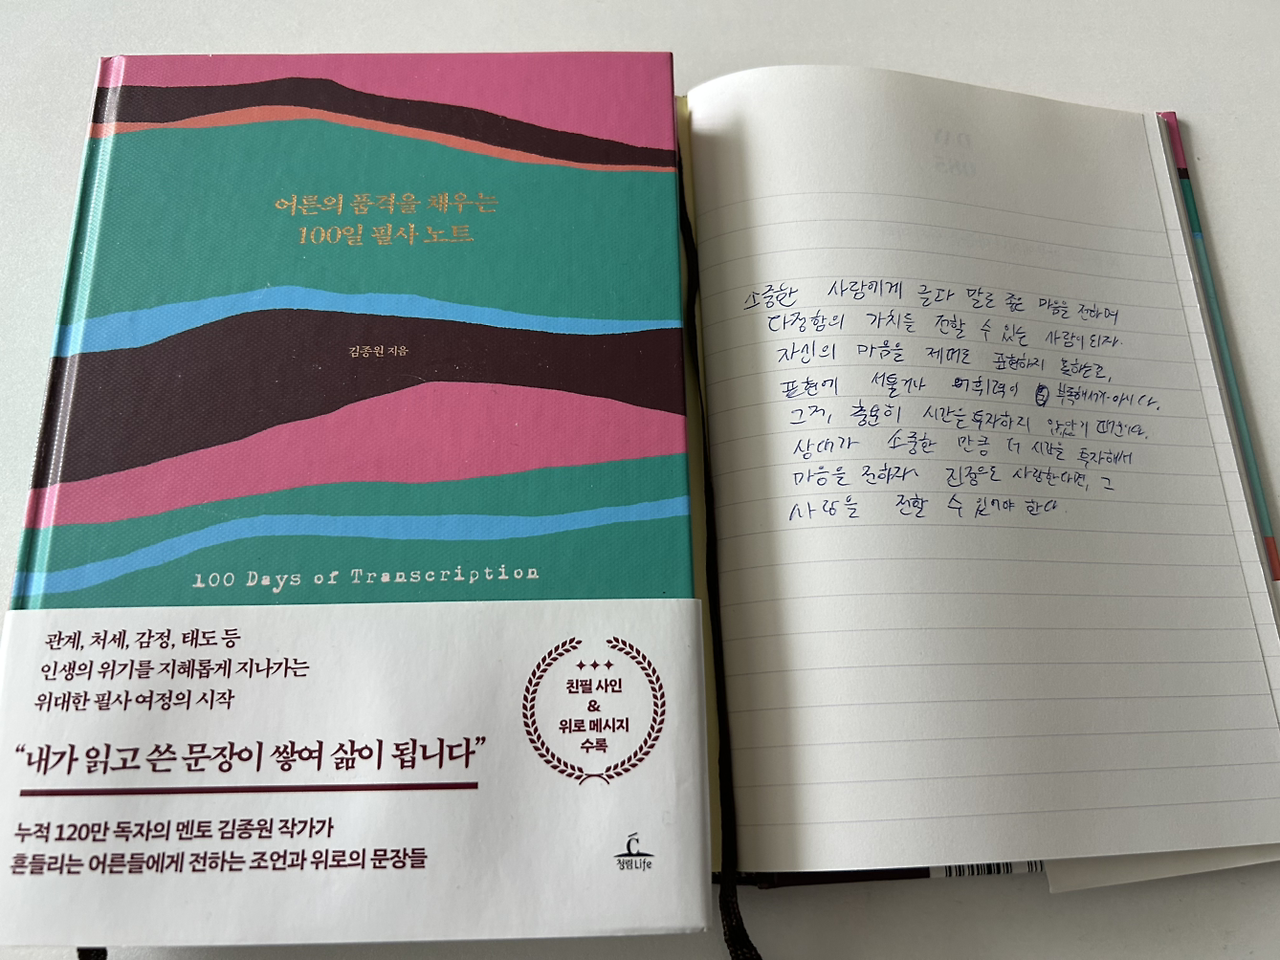 어른의 품격을 채우는
100일 필사 노트
김종원 지음
100 Days of Transcription
관계, 처세, 감정, 태도 등
인생의 위기를 지혜롭게 지나가는
위대한 필사 여정의 시작
“내가 읽고 쓴 문장이 쌓여 삶이 됩니다”
누적 120만 독자의 멘토 김종원 작가가
흔들리는 어른들에게 전하는 조언과 위로의 문장들
친필 사인
&
위로 메시지
수록
청림Life
소중한 사람에게 글과 말로 좋은 마음을 전하며
다정함의 가치를 전할 수 있는 사람이 되자.
자신의 마음을 제대로 표현하지 못하는 건,
표현에 서툴거나 어휘력이 부족해서가 아니다.
그저, 충분히 시간을 투자하지 않았기 때문이다.
상대가 소중한 만큼 더 시간을 투자해서
마음을 전하자. 진정으로 사랑한다면, 그
사랑을 전할 수 있어야 한다.